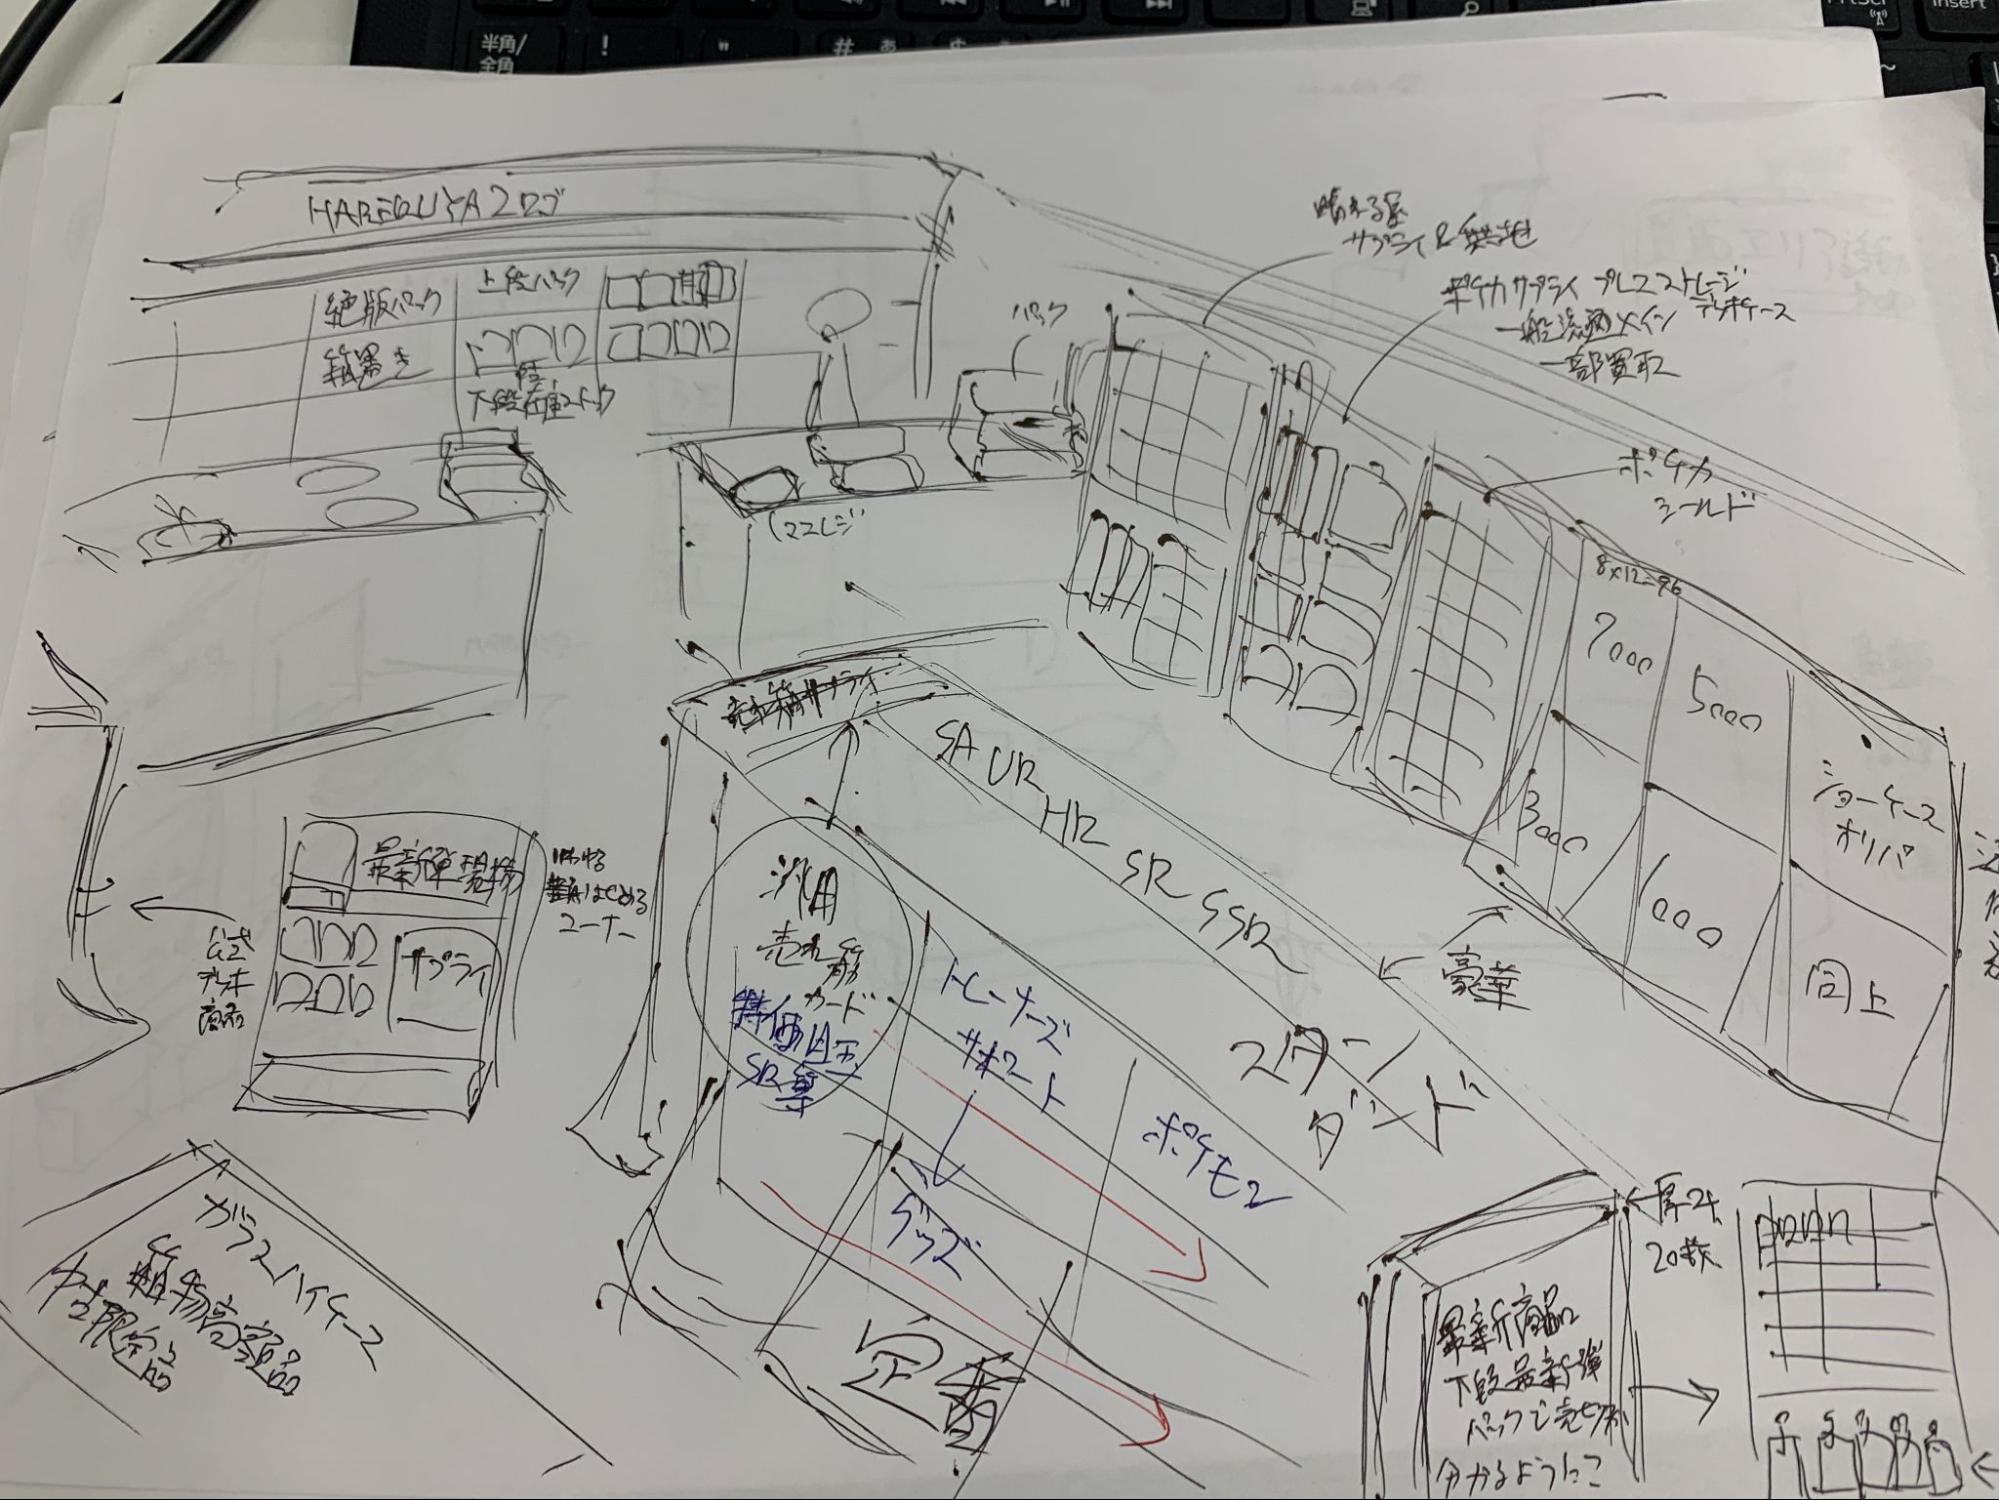 半角/
全角
!
"
#
あ
Insert
HARERUYA2ロゴ
絶版パック
箱置き
上段パック
下段在庫ストック
パック
晴れる屋
サプライ&無地
ポケカサプライ プレマストレージ
デッキケース
一般流通メイン
一部買取
ポケカ
シールド
8×12=96
7000
5000
3000
1000
ショーケース
オリパ
同上
売れ筋サプライ
SA UR
HR SR SSR
豪華
スタン
ダード
汎用
売れ筋
カード
特価
SR等
トレーナーズ
サポート
グッズ
ポケモン
定番
最新弾
サプライ
はじめる
コーナー
公式
デッキ
商品
ガラスハイケース
箱物高額品
限定品
厚み
20枚
最新商品
下段最新弾
パックで売切
分かるように